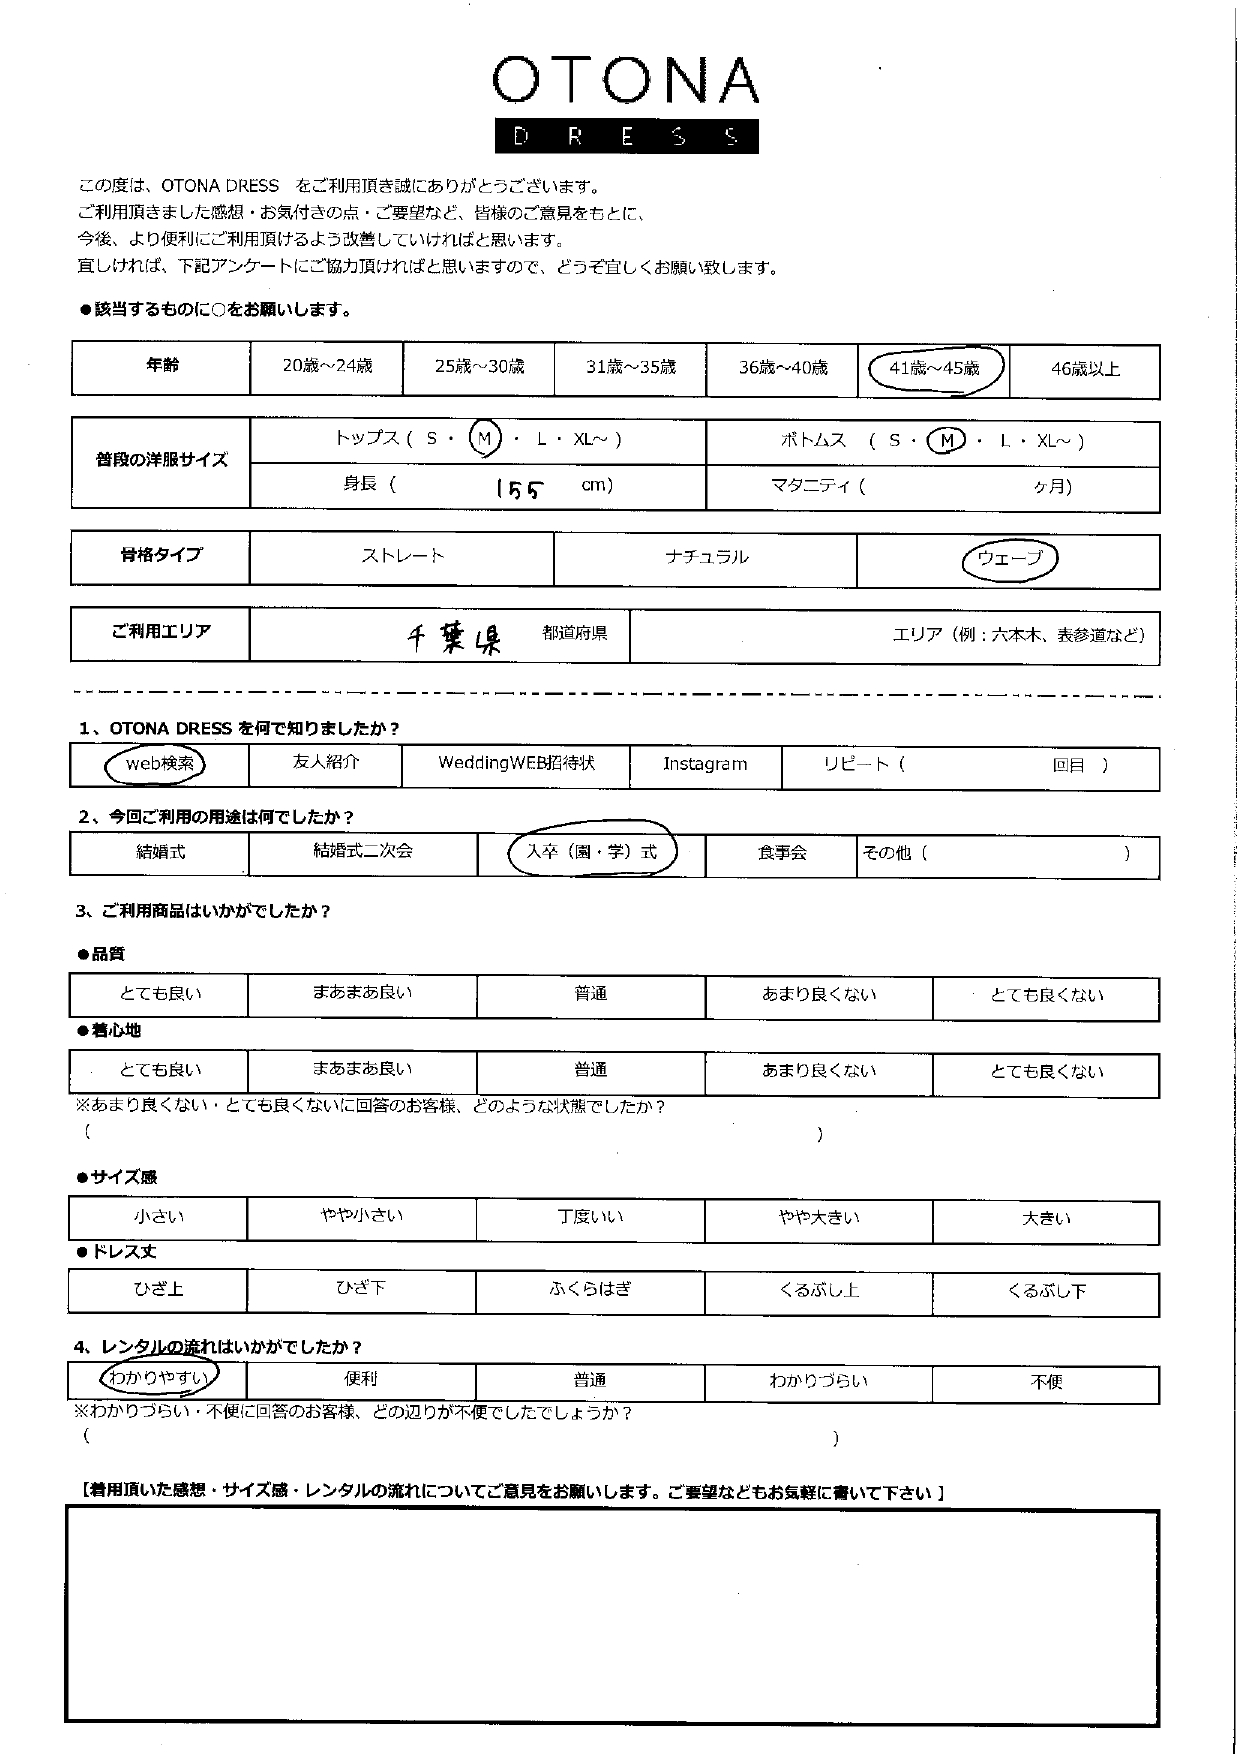 OTONA
DRESS
この度は、OTONA DRESS をご利用頂き誠にありがとうございます。
ご利用頂きました感想・お気付きの点・ご要望など、皆様のご意見をもとに、
今後、より便利にご利用頂けるよう改善していければと思います。
宜しければ、下記アンケートにご協力頂ければと思いますので、どうぞ宜しくお願い致します。
●該当するものに○をお願いします。
年齢 20歳～24歳 25歳～30歳 31歳～35歳 36歳～40歳 41歳～45歳 46歳以上
普段の洋服サイズ トップス ( S ・ M ・ L ・ XL～ ) ボトムス ( S ・ M ・ L ・ XL～ )
身長 ( 155 cm) マタニティ ( ヶ月)
骨格タイプ ストレート ナチュラル ウェーブ
ご利用エリア 千葉県 都道府県 エリア（例：六本木、表参道など）
1、OTONA DRESS を何で知りましたか？
web検索 友人紹介 WeddingWEB招待状 Instagram リピート ( 回目 )
2、今回ご利用の用途は何でしたか？
結婚式 結婚式二次会 入卒（園・学）式 食事会 その他 ( )
3、ご利用商品はいかがでしたか？
●品質
とても良い まあまあ良い 普通 あまり良くない とても良くない
●着心地
とても良い まあまあ良い 普通 あまり良くない とても良くない
※あまり良くない・とても良くないに回答のお客様、どのような状態でしたか？
( )
●サイズ感
小さい やや小さい 丁度いい やや大きい 大きい
●ドレス丈
ひざ上 ひざ下 ふくらはぎ くるぶし上 くるぶし下
4、レンタルの流れはいかがでしたか？
わかりやすい 便利 普通 わかりづらい 不便
※わかりづらい・不便に回答のお客様、どの辺りが不便でしたでしょうか？
( )
[着用頂いた感想・サイズ感・レンタルの流れについてご意見をお願いします。ご要望などもお気軽に書いて下さい ]